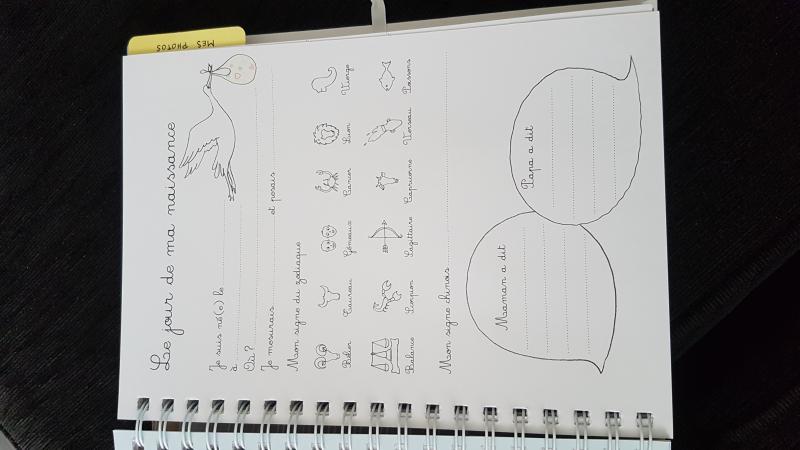 MES PHOTOS
Le jour de ma naissance
Je suis né(e) le
à
Où ?
Je mesurais et pesais
Mon signe du zodiaque
Bélier Taureau Gémeaux Cancer Lion Vierge
Balance Scorpion Sagittaire Capricorne Verseau Poissons
Mon signe chinois
Maman a dit
Papa a dit